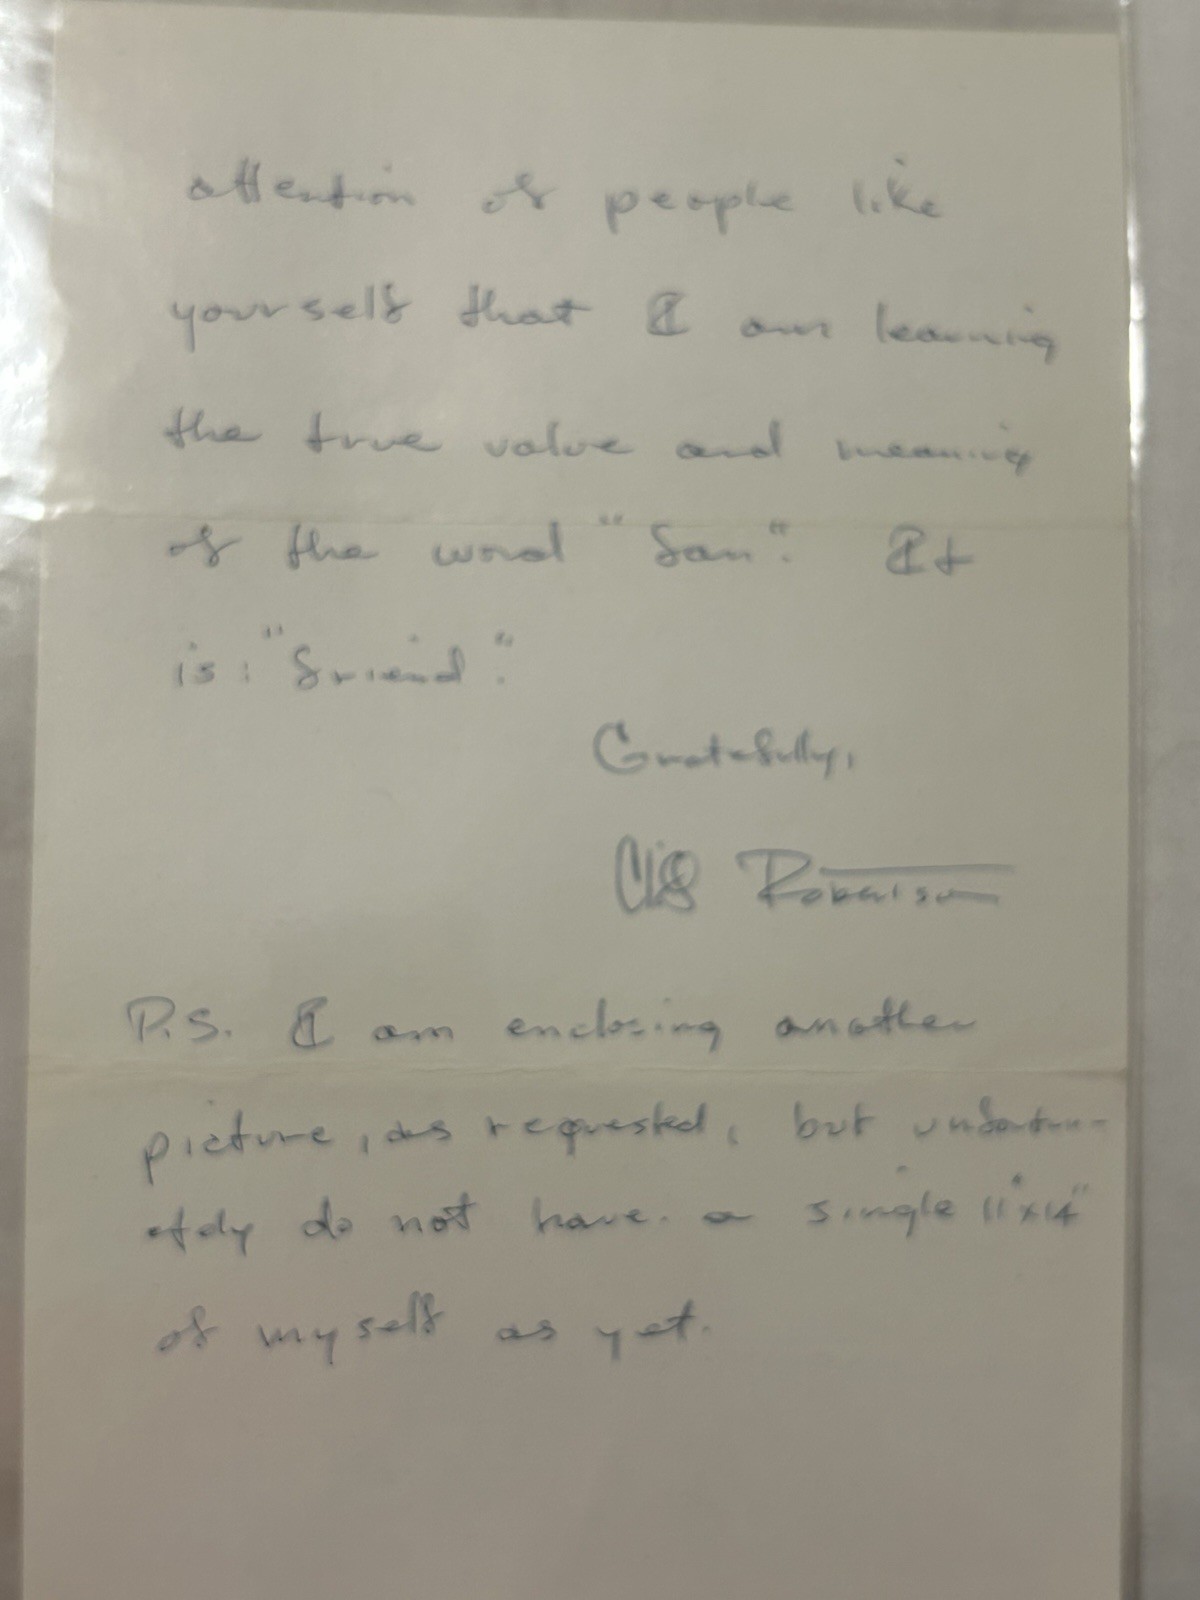 attention of people like
yourself that I am learning
the true value and meaning
of the word "fan". It
is: "friend".
Gratefully,
Cliff Robertson
P.S. I am enclosing another
picture, as requested, but unfortun-
ately do not have a single 11"x14"
of myself as yet.